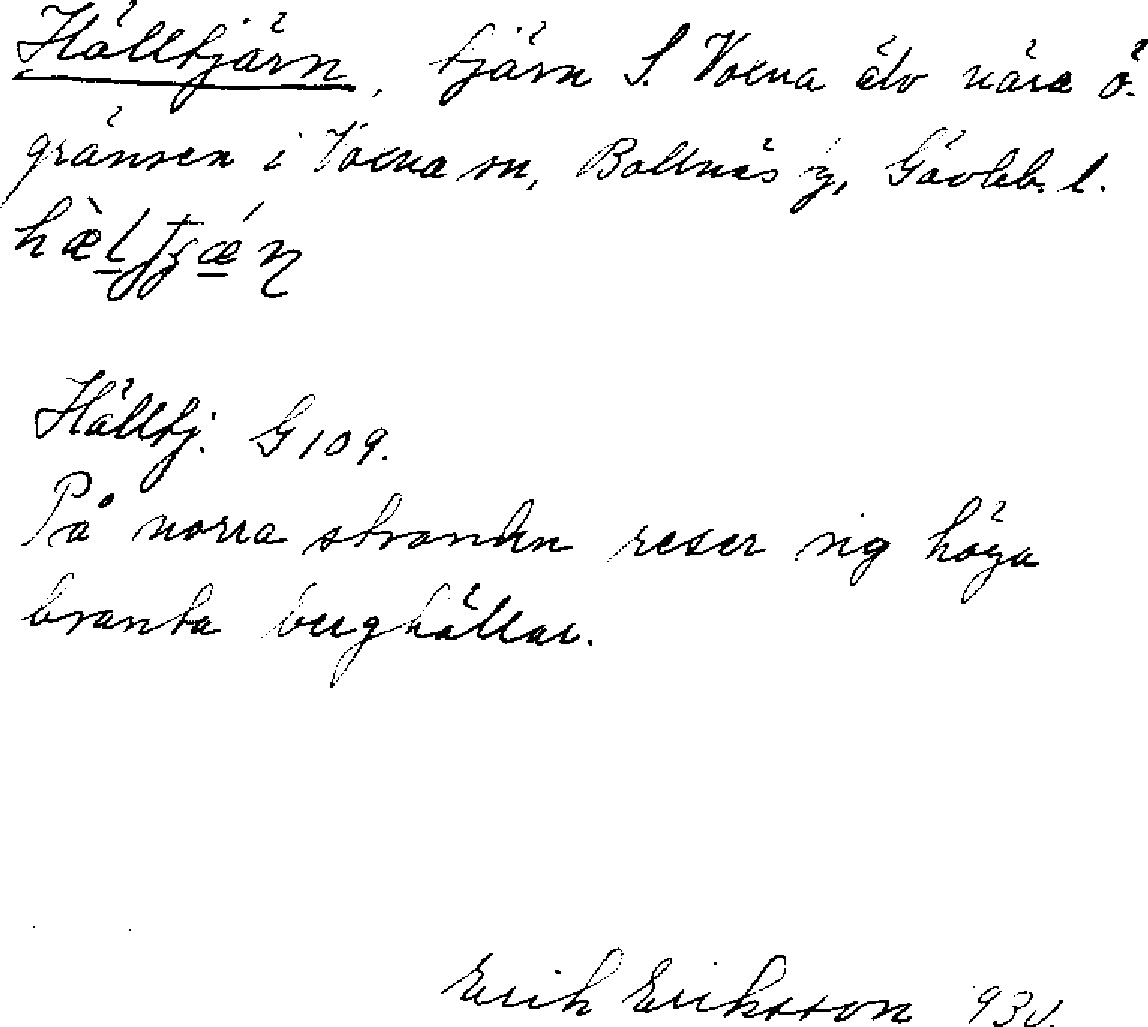 Hälltjärn, tjärn S. Voxna älv nära ö.
gränsen i Voxna sn, Bollnäs tg, Gävleb. l.
Hälltj. G 109.
På norra stranden reser sig höga
branta berghällar.
Erik Eriksson 930.